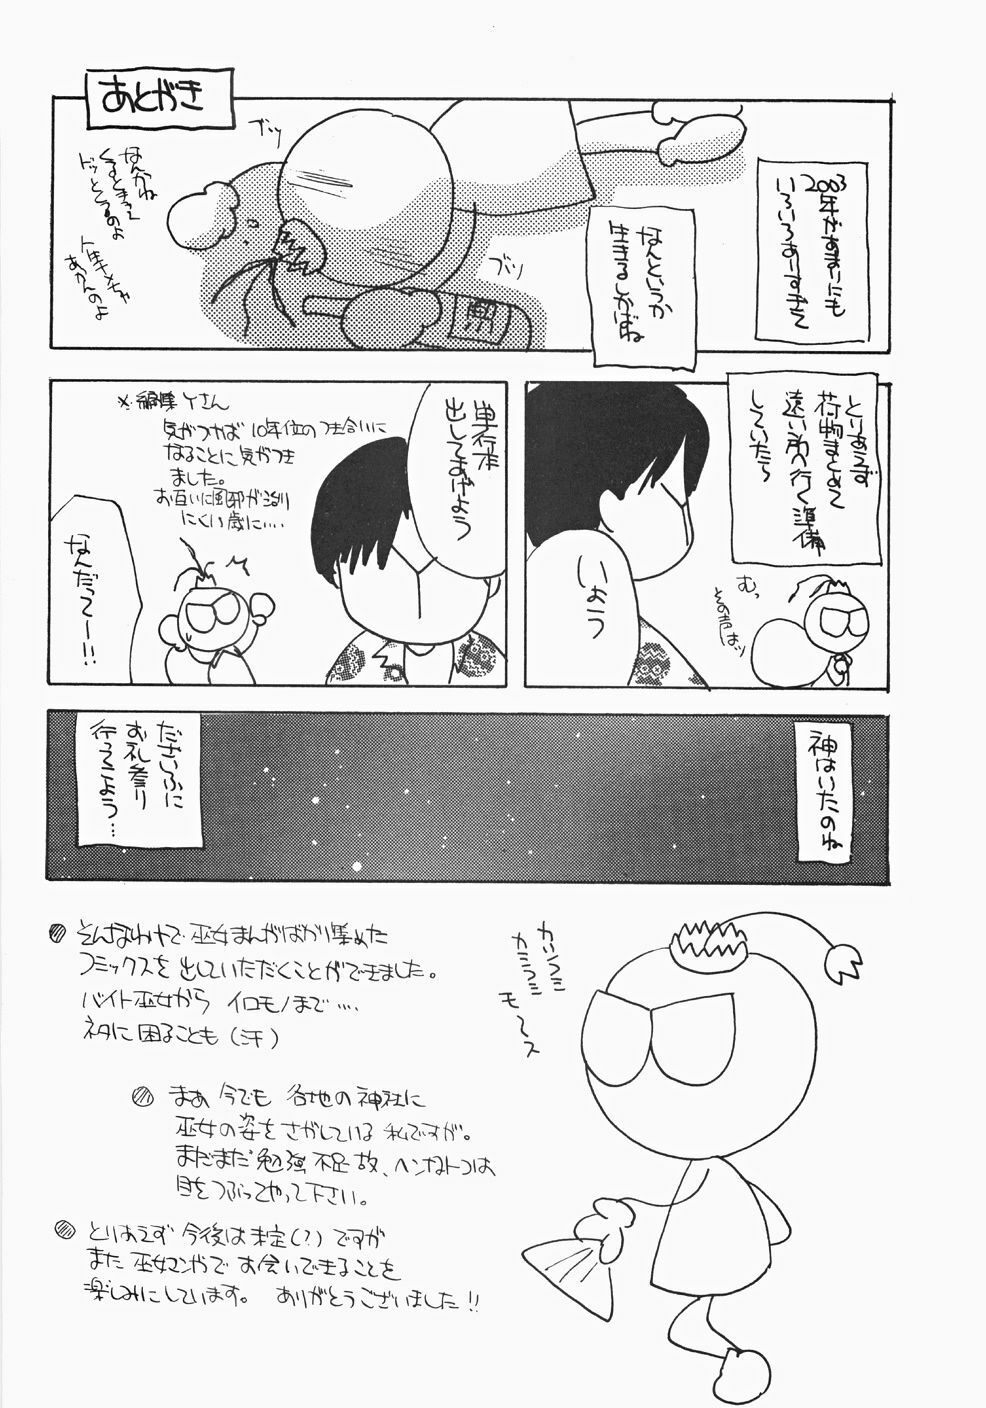 あとがき
2003年があまりにも
いろいろありすぎて
なんというか
生きるしかばね
ブツ
ブツ
なんかね
くるときって
ドッとくるのよ
あかんのよ
とりあえず
荷物まとめて
遠い所へ行く準備
していたら
むっ
その声はッ
いよう
単行本
出してあげよう
※編集Yさん
気がつけば10年位のつき合いに
なることに気がつき
ました。
お互いに風邪が治り
にくい歳に‥‥
なんだってー!!
神はいたのね
ださいふに
お礼参り
行ってこよう…
そんなわけで巫女まんがばかり集めた
コミックスを出していただくことができました。
バイト巫女から イロモノまで‥‥
ネタに困ることも(汗)
まあ今でも 各地の神社に
巫女の姿をさがしている私ですが。
まだまだ勉強不足故、ヘンなトコは
目をつぶってやって下さい。
とりあえず 今後は未定(?)ですが
また巫女マンガでお会いできることを
楽しみにしています。 ありがとうございました!!